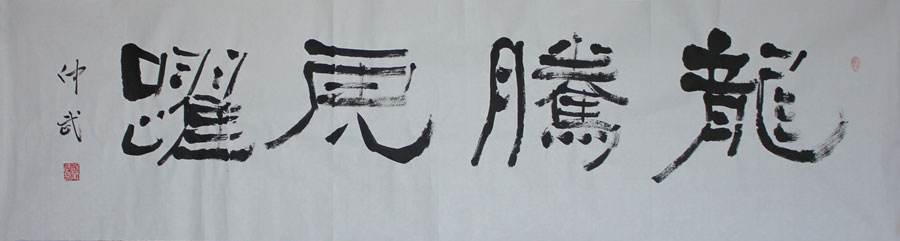 龍騰虎躍
仲武